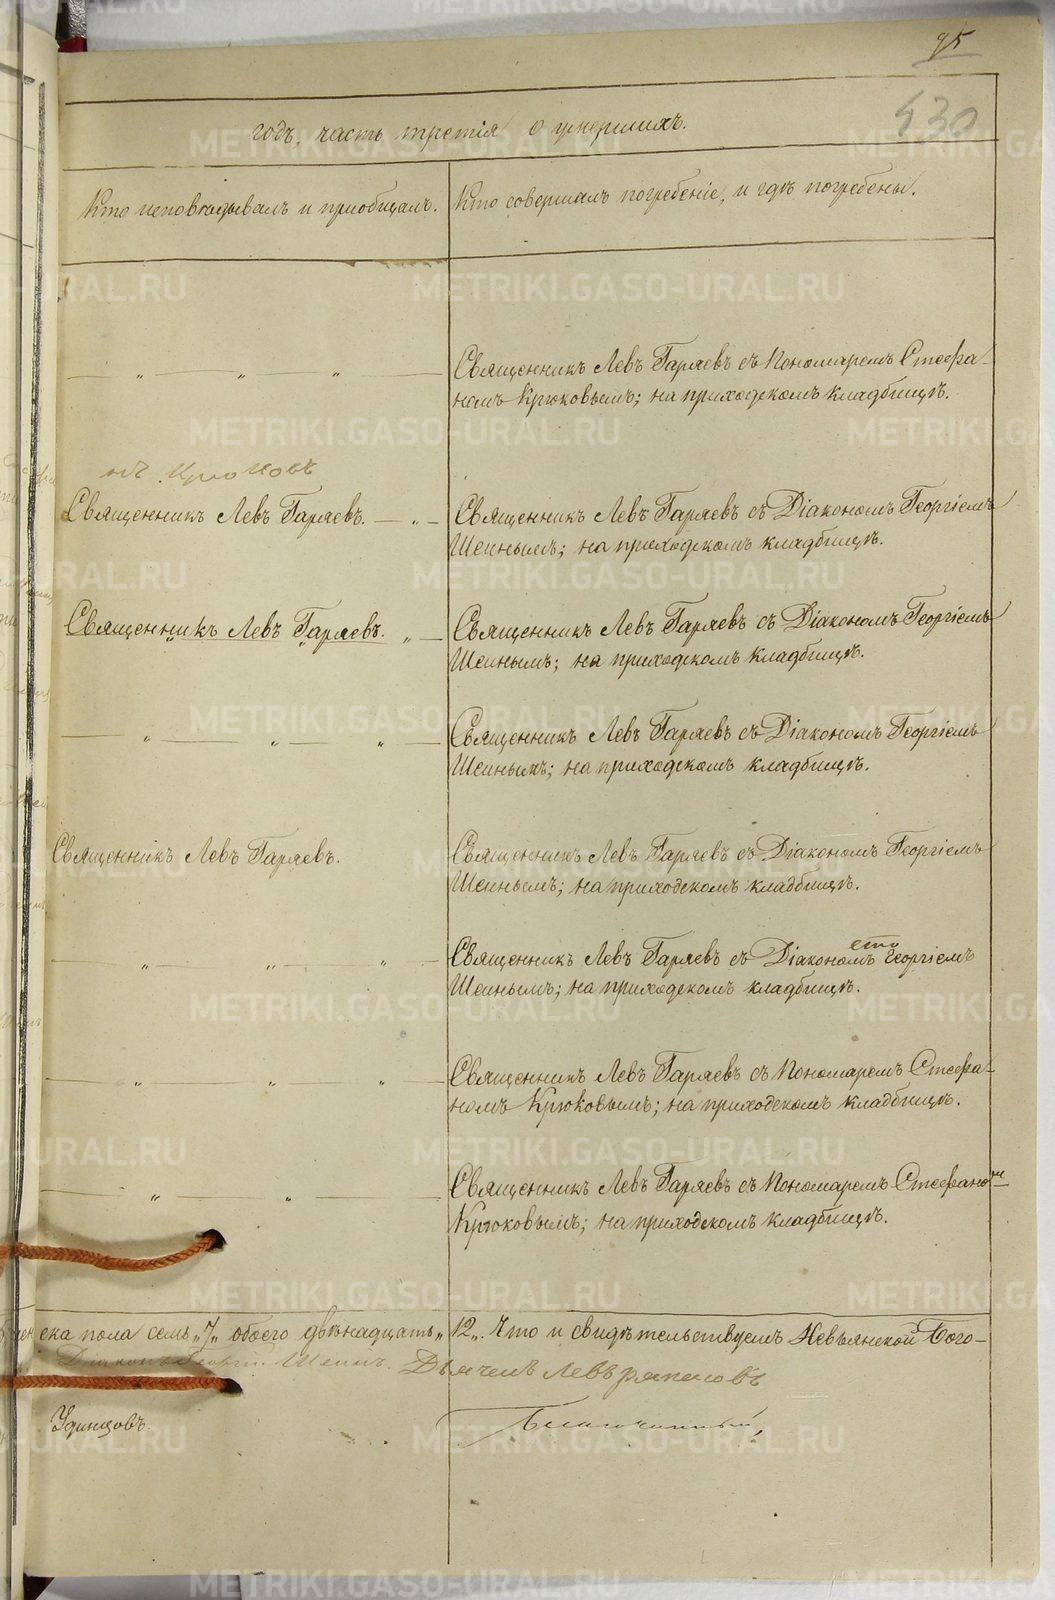 95
430
годъ, часть третія о умершихъ.
Кто исповѣдывалъ и пріобщалъ.
Кто совершалъ погребеніе, и гдѣ погребены.
Священникъ Левъ Гаряевъ съ Пономаремъ Стефа-
номъ Крюковымъ; на приходскомъ кладбищѣ.
Крюковъ
Священникъ Левъ Гаряевъ. — „ —
Священникъ Левъ Гаряевъ съ Діакономъ Георгіемъ
Шеинымъ; на приходскомъ кладбищѣ.
Священникъ Левъ Гаряевъ. „ —
Священникъ Левъ Гаряевъ съ Діакономъ Георгіемъ
Шеинымъ; на приходскомъ кладбищѣ.
Священникъ Левъ Гаряевъ съ Діакономъ Георгіемъ
Шеинымъ; на приходскомъ кладбищѣ.
Священникъ Левъ Гаряевъ.
Священникъ Левъ Гаряевъ съ Діакономъ Георгіемъ
Шеинымъ; на приходскомъ кладбищѣ.
Священникъ Левъ Гаряевъ съ Діакономъ Георгіемъ
Шеинымъ; на приходскомъ кладбищѣ.
Священникъ Левъ Гаряевъ съ Пономаремъ Стефа-
номъ Крюковымъ; на приходскомъ кладбищѣ.
Священникъ Левъ Гаряевъ съ Пономаремъ Стефаномъ
Крюковымъ; на приходскомъ кладбищѣ.
ска пола семь „7„ обоего двѣнадцать „12„. Что и свидѣтельствуемъ Невьянской Бого-
Діаконъ Георгій Шеинъ. Дьячекъ Левъ
Удинцовъ.
Благочинный,
METRIKI.GASO-URAL.RU